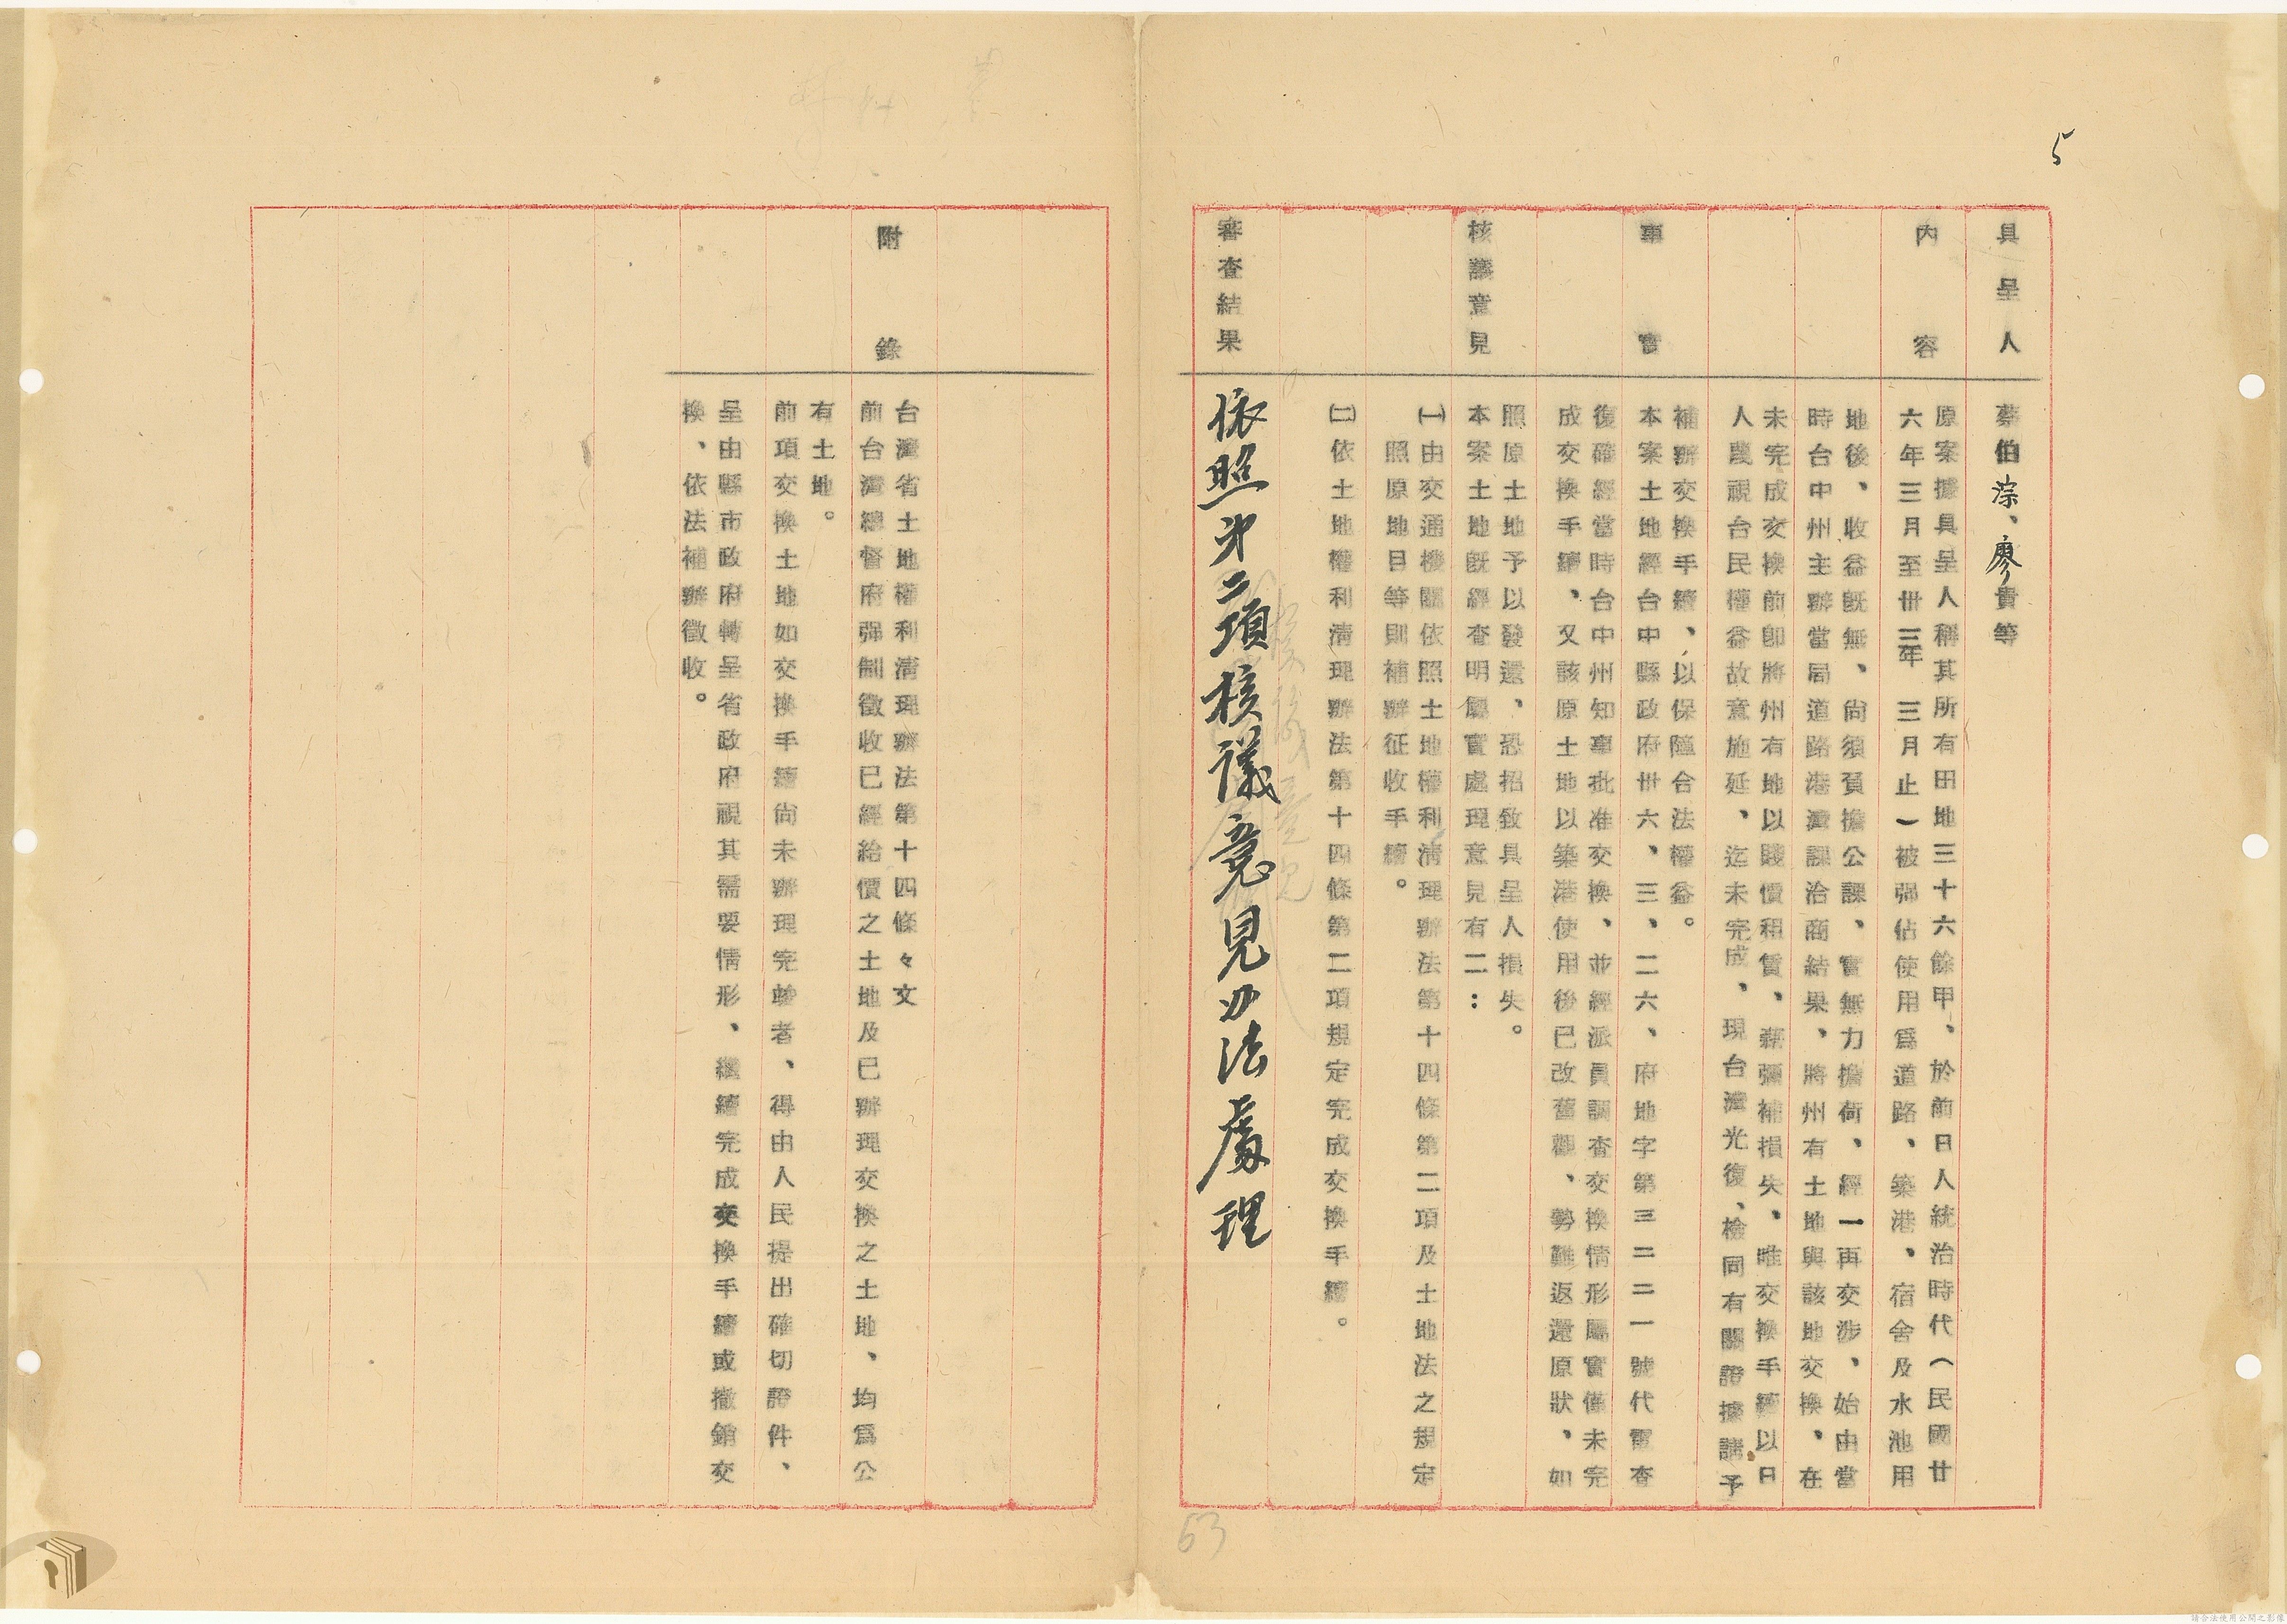 5
具呈人
蔡伯淙、廖貴等
內容
原案據具呈人稱其所有田地三十六餘甲、於前日人統治時代（民國廿
六年三月至卅三年三月止）被強佔使用爲道路、築港、宿舍及水池用
地後、收益既無、尙須負擔公課、實無力擔荷、經一再交涉、始由當
時台中州主辦當局道路港灣課洽商結果、將州有土地與該地交換、在
未完成交換前卽將州有地以賤價租賃、藉彌補損失、唯交換手續以日
人蔑視台民權益故意施延、迄未完成、現台灣光復、檢同有關證據請予
補辦交換手續、以保障合法權益。
事實
本案土地經台中縣政府卅六、三、二六、府地字第三二二一號代電查
復確經當時台中州知事批准交換、並經派員調查交換情形屬實僅未完
成交換手續、又該原土地以築港使用後已改舊觀、勢難返還原狀、如
照原土地予以發還、恐招致具呈人損失。
核議意見
本案土地既經查明屬實處理意見有二：
㈠由交通機關依照土地權利清理辦法第十四條第二項及土地法之規定
照原地目等則補辦征收手續。
㈡依土地權利清理辦法第十四條第二項規定完成交換手續。
審查結果
依照第二項核議意見办法處理
附錄
台灣省土地權利清理辦法第十四條々文
前台灣總督府強制徵收已經給價之土地及已辦理交換之土地、均爲公
有土地。
前項交換土地如交換手續尙未辦理完竣者、得由人民提出確切證件、
呈由縣市政府轉呈省政府視其需要情形、繼續完成交換手續或撤銷交
換、依法補辦徵收。
63
請合法使用公開之影像